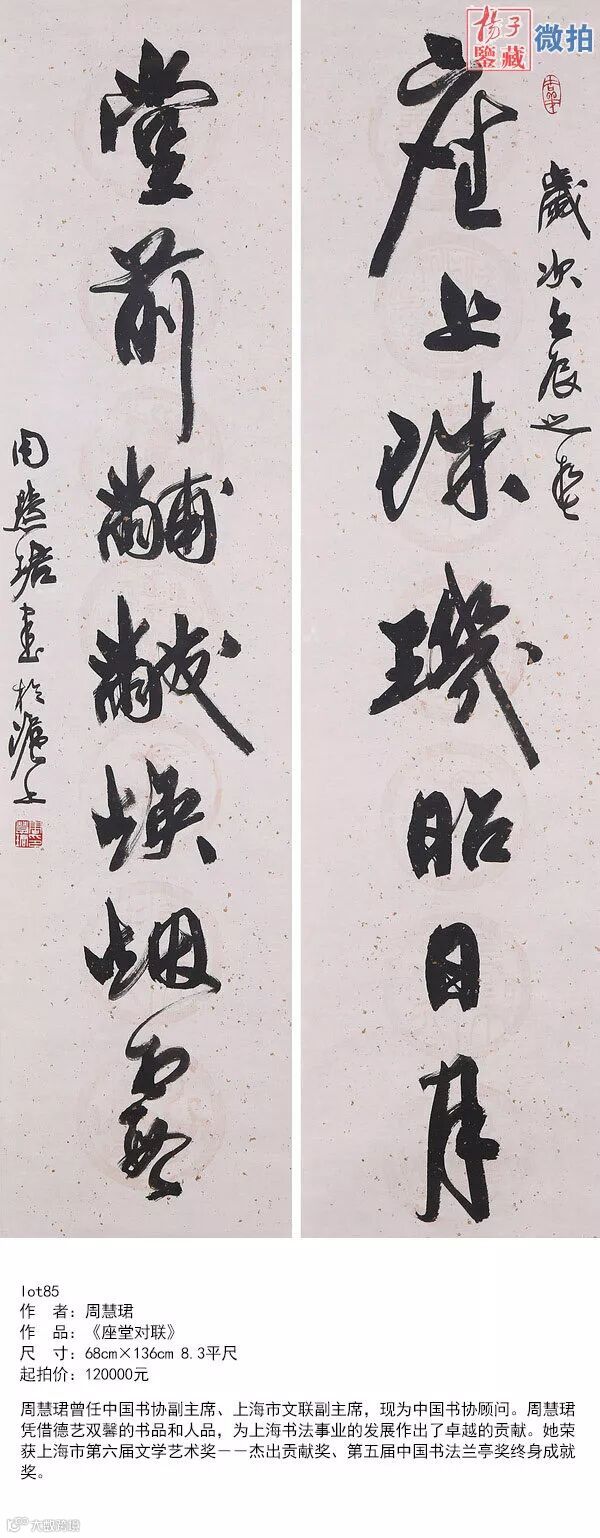 扬子鑒藏
微拍
歲次壬辰之春
座上珠璣昭日月
堂前黼黻煥烟霞
周慧珺書於滬上
lot85
作 者：周慧珺
作 品：《座堂对联》
尺 寸：68cm×136cm 8.3平尺
起拍价：120000元
周慧珺曾任中国书协副主席、上海市文联副主席，现为中国书协顾问。周慧珺
凭借德艺双馨的书品和人品，为上海书法事业的发展作出了卓越的贡献。她荣
获上海市第六届文学艺术奖——杰出贡献奖、第五届中国书法兰亭奖终身成就
奖。
大数跨境